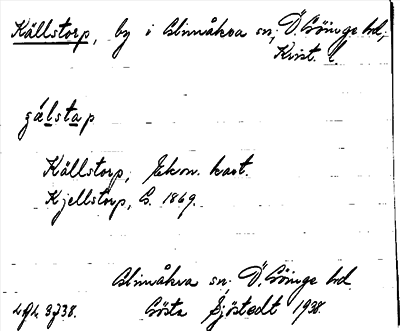 Källstorp, by i Glimåkra sn; Ö. Göinge hd;
Krist. l
gálstap
Källstorp, Ekon. kart.
Kjellstorp, G. 1869.
Glimåkra sn; Ö. Göinge hd
Gösta Sjöstedt 1938.